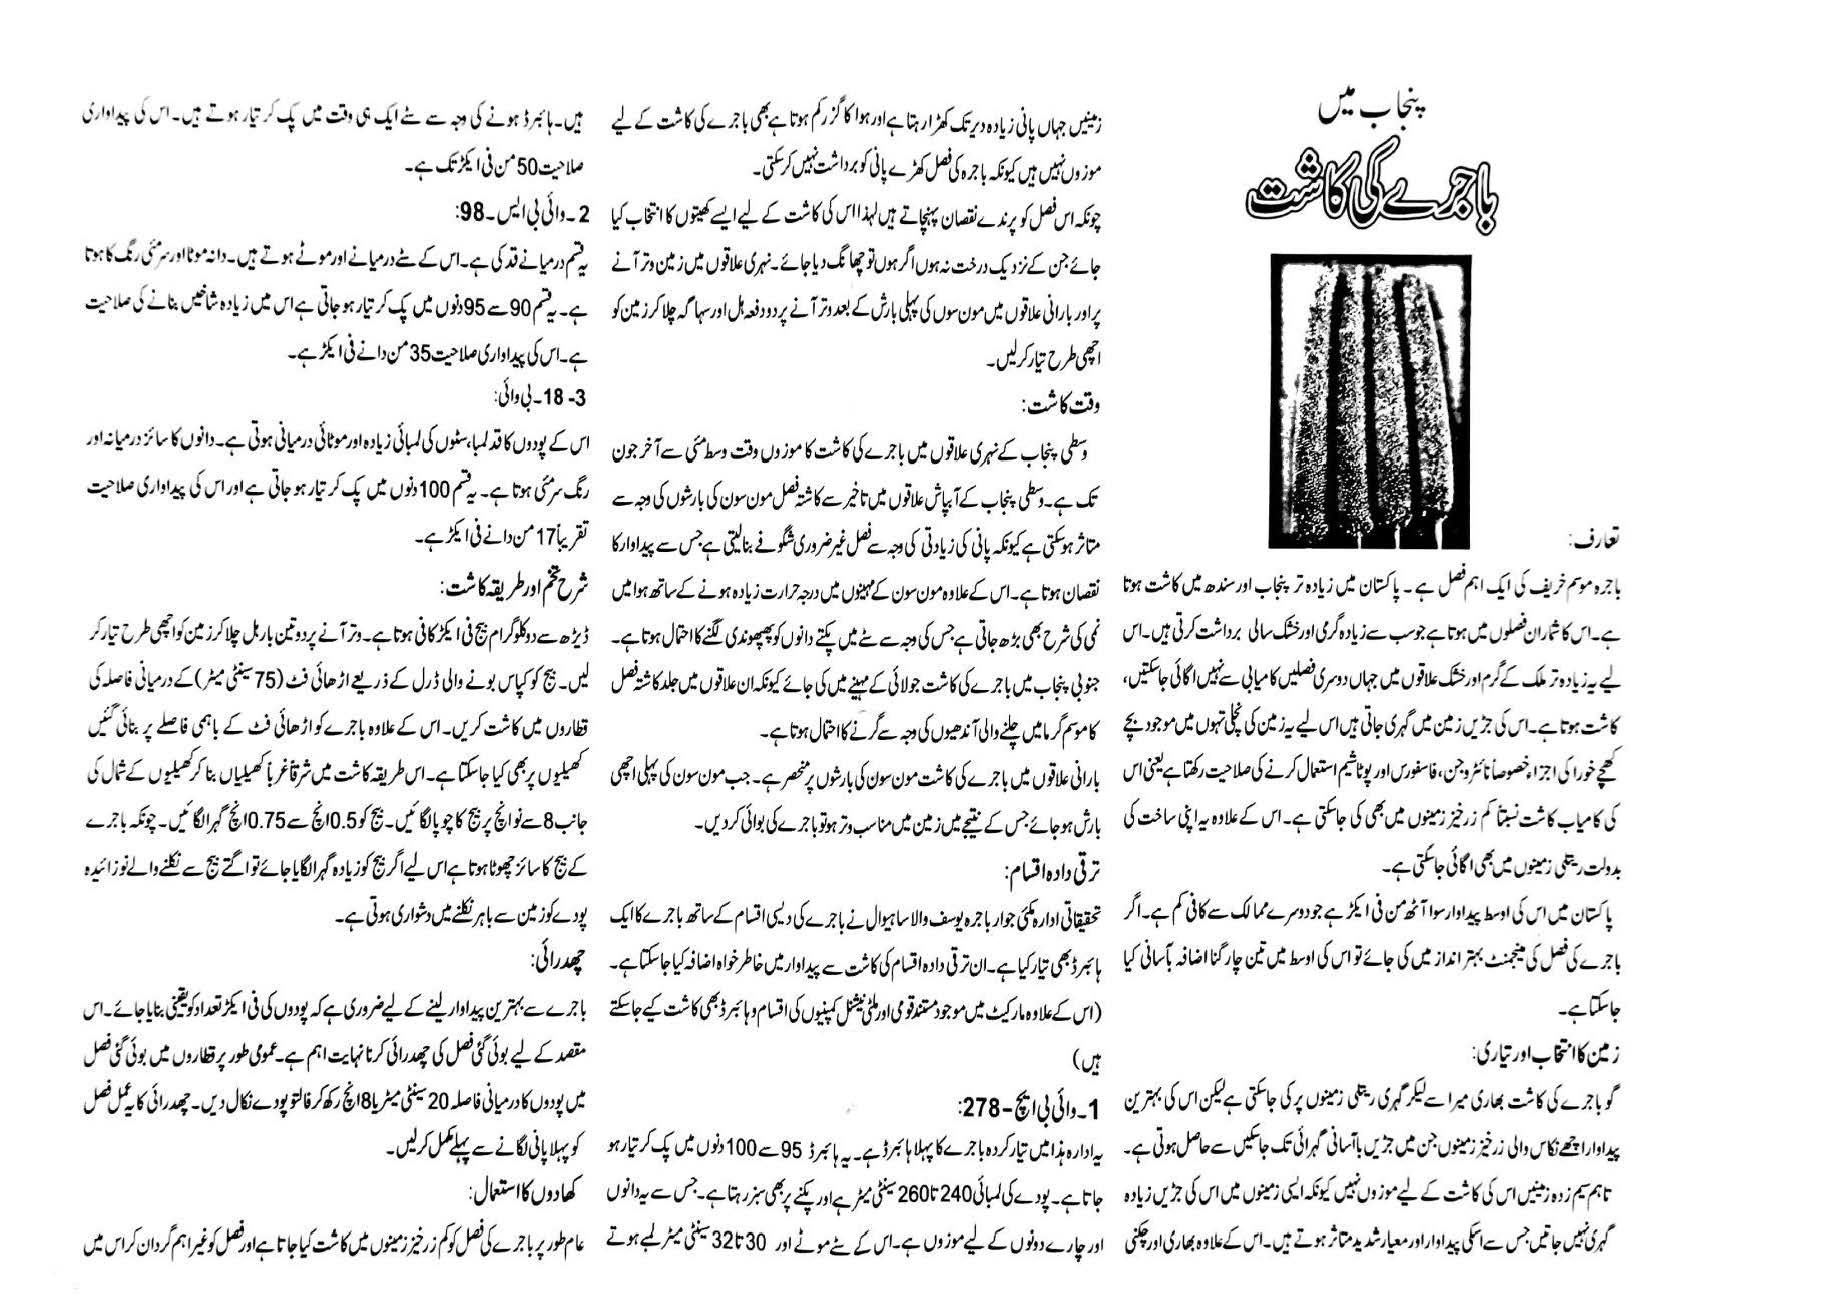 پنجاب میں
باجرے کی کاشت
تعارف:
باجرہ موسم خریف کی ایک اہم فصل ہے۔ پاکستان میں زیادہ تر پنجاب اور سندھ میں کاشت ہوتا
ہے۔اس کا شمار ان فصلوں میں ہوتا ہے جو سب سے زیادہ گرمی اور خشک سالی برداشت کرتی ہیں۔اس
لیے یہ زیادہ تر ملک کے گرم اور خشک علاقوں میں جہاں دوسری فصلیں کامیابی سے نہیں اگائی جاسکتیں،
کاشت ہوتا ہے۔اس کی جڑیں زمین میں گہری جاتی ہیں اس لیے یہ زمین کی نچلی تہوں میں موجود بچے
کھچے خوراکی اجزاء خصوصاً نائٹروجن، فاسفورس اور پوٹاشیم استعمال کرنے کی صلاحیت رکھتا ہے یعنی اس
کی کامیاب کاشت نسبتاً کم زرخیز زمینوں میں بھی کی جاسکتی ہے۔اس کے علاوہ یہ اپنی ساخت کی
بدولت ریتلی زمینوں میں بھی اگائی جاسکتی ہے۔
پاکستان میں اس کی اوسط پیداوار سوا آٹھ من فی ایکڑ ہے جو دوسرے ممالک سے کافی کم ہے۔اگر
باجرے کی فصل کی مینجمنٹ بہتر انداز میں کی جائے تو اس کی اوسط میں تین چار گنا اضافہ بآسانی کیا
جاسکتا ہے۔
زمین کا انتخاب اور تیاری:
گو باجرے کی کاشت بھاری میرا سے لیکر گہری ریتلی زمینوں پر کی جاسکتی ہے لیکن اس کی بہترین
پیداوار اچھے نکاس والی زرخیز زمینوں جن میں جڑیں باآسانی گہرائی تک جاسکیں سے حاصل ہوتی ہے۔
تاہم سیم زدہ زمینیں اس کی کاشت کے لیے موزوں نہیں کیونکہ ایسی زمینوں میں اس کی جڑیں زیادہ
گہری نہیں جاتیں جس سے اسکی پیداوار اور معیار شدید متاثر ہوتے ہیں۔اس کے علاوہ بھاری اور چکنی
زمینیں جہاں پانی زیادہ دیر تک کھڑا رہتا ہے اور ہوا کا گزر کم ہوتا ہے بھی باجرے کی کاشت کے لیے
موزوں نہیں ہیں کیونکہ باجرہ کی فصل کھڑے پانی کو برداشت نہیں کرسکتی۔
چونکہ اس فصل کو پرندے نقصان پہنچاتے ہیں لہذا اس کی کاشت کے لیے ایسے کھیتوں کا انتخاب کیا
جائے جن کے نزدیک درخت نہ ہوں اگر ہوں تو چھانگ دیا جائے۔نہری علاقوں میں زمین وتر آنے
پر اور بارانی علاقوں میں مون سوں کی پہلی بارش کے بعد وتر آنے پر دو دفعہ ہل اور سہاگہ چلا کر زمین کو
اچھی طرح تیار کرلیں۔
وقت کاشت:
وسطی پنجاب کے نہری علاقوں میں باجرے کی کاشت کا موزوں وقت وسط مئی سے آخر جون
تک ہے۔وسطی پنجاب کے آبپاش علاقوں میں تاخیر سے کاشتہ فصل مون سون کی بارشوں کی وجہ سے
متاثر ہوسکتی ہے کیونکہ پانی کی زیادتی کی وجہ سے فصل غیر ضروری شگوفے بنالیتی ہے جس سے پیداوار کا
نقصان ہوتا ہے۔اس کے علاوہ مون سون کے مہینوں میں درجہ حرارت زیادہ ہونے کے ساتھ ہوا میں
نمی کی شرح بھی بڑھ جاتی ہے جس کی وجہ سے سٹے میں پکتے دانوں کو پھپھوندی لگنے کا احتمال ہوتا ہے۔
جنوبی پنجاب میں باجرے کی کاشت جولائی کے مہینے میں کی جائے کیونکہ ان علاقوں میں جلد کاشتہ فصل
کا موسم گرما میں چلنے والی آندھیوں کی وجہ سے گرنے کا احتمال ہوتا ہے۔
بارانی علاقوں میں باجرے کی کاشت مون سون کی بارشوں پر منحصر ہے۔ جب مون سون کی پہلی اچھی
بارش ہوجائے جس کے نتیجے میں زمین میں مناسب وتر ہو تو باجرے کی بوائی کردیں۔
ترقی دادہ اقسام:
تحقیقاتی ادارہ مکئی جوار باجرہ یوسف والا ساہیوال نے باجرے کی دیسی اقسام کے ساتھ باجرے کا ایک
ہائبرڈ بھی تیار کیا ہے۔ان ترقی دادہ اقسام کی کاشت سے پیداوار میں خاطر خواہ اضافہ کیا جاسکتا ہے۔
(اس کے علاوہ مارکیٹ میں موجود مستند قومی اور ملٹی نیشنل کمپنیوں کی اقسام و ہائبرڈ بھی کاشت کیے جاسکتے
ہیں)
1۔وائی بی ایچ-278:
یہ ادارہ ہذا میں تیار کردہ باجرے کا پہلا ہائبرڈ ہے۔ یہ ہائبرڈ 95 سے 100 دنوں میں پک کر تیار ہو
جاتا ہے۔ پودے کی لمبائی 240 تا 260 سینٹی میٹر ہے اور پکنے پر بھی سبز رہتا ہے۔ جس سے یہ دانوں
اور چارے دونوں کے لیے موزوں ہے۔اس کے سٹے موٹے اور 30 تا 32 سینٹی میٹر لمبے ہوتے
ہیں۔ہائبرڈ ہونے کی وجہ سے سٹے ایک ہی وقت میں پک کر تیار ہوتے ہیں۔اس کی پیداواری
صلاحیت 50 من فی ایکڑ تک ہے۔
2۔وائی بی ایس۔98:
یہ قسم درمیانے قد کی ہے۔اس کے سٹے درمیانے اور موٹے ہوتے ہیں۔دانہ موٹا اور سرمئی رنگ کا ہوتا
ہے۔یہ قسم 90 سے 95 دنوں میں پک کر تیار ہوجاتی ہے اس میں زیادہ شاخیں بنانے کی صلاحیت
ہے۔اس کی پیداواری صلاحیت 35 من دانے فی ایکڑ ہے۔
3- 18۔بی وائی:
اس کے پودوں کا قد لمبا،سٹوں کی لمبائی زیادہ اور موٹائی درمیانی ہوتی ہے۔دانوں کا سائز درمیانہ اور
رنگ سرمئی ہوتا ہے۔ یہ قسم 100 دنوں میں پک کر تیار ہوجاتی ہے اور اس کی پیداواری صلاحیت
تقریباً 17 من دانے فی ایکڑ ہے۔
شرح تخم اور طریقہ کاشت:
ڈیڑھ سے دو کلوگرام بیج فی ایکڑ کافی ہوتا ہے۔وتر آنے پر دو تین بار ہل چلا کر زمین کو اچھی طرح تیار کر
لیں۔ بیج کو کپاس بونے والی ڈرل کے ذریعے اڑھائی فٹ (75 سینٹی میٹر) کے درمیانی فاصلہ کی
قطاروں میں کاشت کریں۔ اس کے علاوہ باجرے کو اڑھائی فٹ کے باہمی فاصلے پر بنائی گئیں
کھیلیوں پر بھی کیا جاسکتا ہے۔اس طریقہ کاشت میں شرقاً غرباً کھیلیاں بنا کر کھیلیوں کے شمال کی
جانب 8 سے نو انچ پر بیج کا چوپا لگائیں۔ بیج کو 0.5 انچ سے 0.75 انچ گہرا لگائیں۔ چونکہ باجرے
کے بیج کا سائز چھوٹا ہوتا ہے اس لیے اگر بیج کو زیادہ گہرا لگایا جائے تو اگتے بیج سے نکلنے والے نوزائیدہ
پودے کو زمین سے باہر نکلنے میں دشواری ہوتی ہے۔
چھدرائی:
باجرے سے بہترین پیداوار لینے کے لیے ضروری ہے کہ پودوں کی فی ایکڑ تعداد کو یقینی بنایا جائے۔اس
مقصد کے لیے بوئی گئی فصل کی چھدرائی کرنا نہایت اہم ہے۔عمومی طور پر قطاروں میں بوئی گئی فصل
میں پودوں کا درمیانی فاصلہ 20 سینٹی میٹر یا 8 انچ رکھ کر فالتو پودے نکال دیں۔چھدرائی کا یہ عمل فصل
کو پہلا پانی لگانے سے پہلے مکمل کرلیں۔
کھادوں کا استعمال:
عام طور پر باجرے کی فصل کو کم زرخیز زمینوں میں کاشت کیا جاتا ہے اور فصل کو غیر اہم گردان کر اس میں